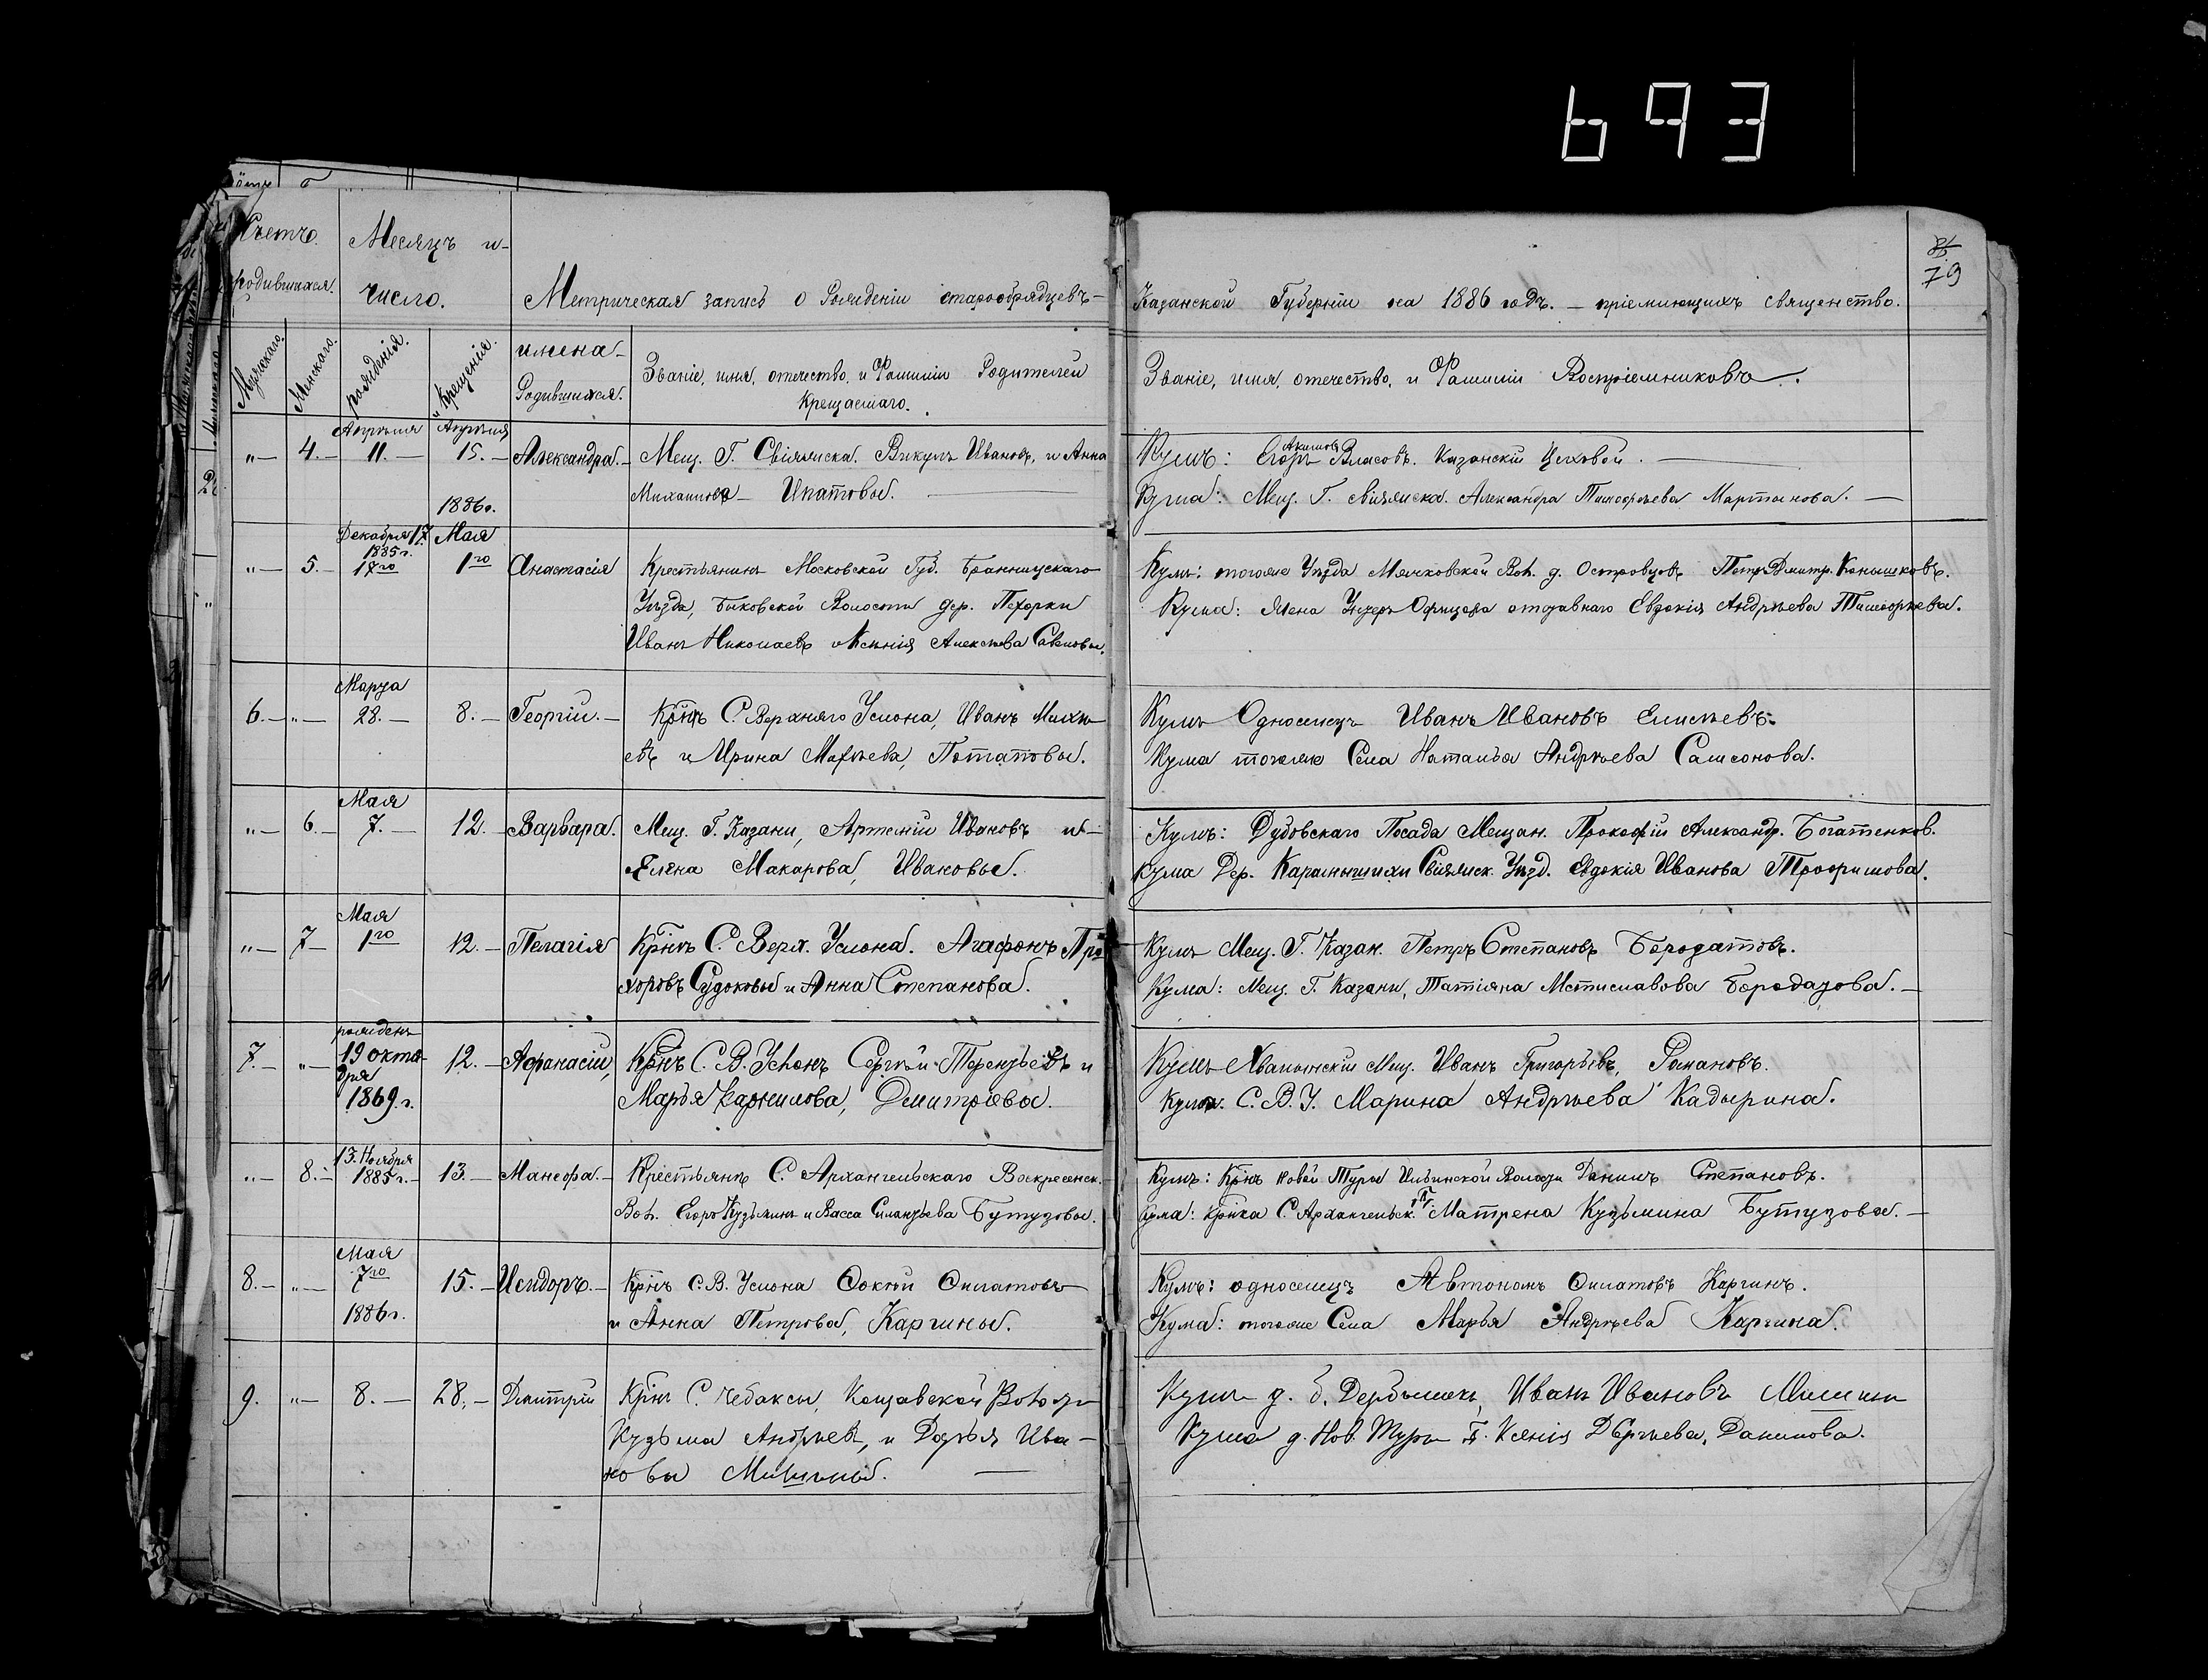 693
79
Счетъ родившихся.
Месяцъ и число.
Метрическая запись о Рожденіи старообрядцевъ Казанской Губерніи на 1886 годъ. – пріемлющихъ священство.
Мужскаго.
Женскаго.
рожденія.
и Крещенія.
имена Родившихся.
Званіе, имя, отечество, и Фамиліи Родителей
Крещаемаго.
Званіе, имя, отечество, и Фамиліи Воспріемниковъ.
„ — 4. — Апреля 11. — Апреля 15. — Александра. — Мещ. Г. Свіяжска. Викулъ Ивановъ, и Анна
Михаилова — Ипатовы.
Кумъ: Егоръ Акимовъ Власовъ. Казанскій Цеховой.
Кума: Мещ. Г. Свіяжска. Александра Тимофеева Мартынова. —
„ — 5. — Декабря 17 1885 г. 17го 1886г. Мая 1го Анастасія Крестьянинъ Московской Губ. Бронницскаго
Уѣзда, Быковской Волости дер. Пехорки
Иванъ Николаевъ и Ксенія Алексѣева Савеловы.
Кумъ: тогоже Уѣзда Мячковской Вол. д. Островцовъ Петръ Дмитр. Конышковъ.
Кума: Жена Унтеръ Офицера отставнаго Евдокія Андрѣева Тимофѣева.
6. — „ — Марта 28. — 8. — Георгій. — Крнъ С. Верхняго Услона, Иванъ Михѣ
евъ и Ирина Матвѣева, Потаповы.
Кумъ Односелецъ Иванъ Ивановъ Елисѣевъ.
Кума тогоже Села Наталья Андрѣева Самсонова.
„ — 6. — Мая 7. — 12. — Варвара. Мещ. Г. Казани, Артемій Ивановъ и —
Елена Макарова, Ивановы.
Кумъ: Дубовскаго Посада Мещан. Прокофій Александр. Богатенков.
Кума Дер. Карамышихи Свіяжск. Уѣзд. Евдокія Иванова Трофимова.
„ — 7 — Мая 1го 12. — Пелагія Крнъ С. Верх. Услона. Агафонъ Про
хоровъ Судоковы и Анна Степанова.
Кумъ Мещ. Г. Казан. Петръ Степановъ Бородатовъ.
Кума: Мещ. Г. Казани, Татіяна Мстиславова Бородатова. —
7. — „ — рожденъ 19 октября 1869. г. 12. — Афанасій, Крнъ С. В. Услонъ Сергѣй Терентьевъ и
Марья Карнилова, Дмитріевы.
Кумъ Хвалынскій Мещ. Иванъ Григорьевъ, Романовъ.
Кума. С. В. У. Марина Андрѣева Кадырина.
„ — 8. — 13. Ноября 1885 г. — 13. — Манефа. — Крестьянъ С. Архангельскаго Воскресенск.
Вол. Егоръ Кузьминъ и Васса Силантьева Бутузовы.
Кумъ: Крнъ Новой Туры Ильинской Волости Данилъ Степановъ.
Кума: Крнка С. Архангельск. Матрена Кузьмина Бутузова. —
8. — „ — Мая 7го 1886 г. 15. — Исидоръ. — Крнъ С. В. Услона Фокѣй Филатовъ
и Анна Петрова, Каргины.
Кумъ: односелецъ Автономъ Филатовъ Каргинъ.
Кума: тогоже Села Марья Андрѣева Каргина.
9. „ — 8. — 28. — Дмитрій Крнъ С. Чебаксы, Кощавской Волости
Кузьма Андрѣевъ, и Дарья Ива —
новы Мишины.
Кумъ д. б. Дербышекъ, Иванъ Ивановъ Мишинъ
Кума д. Нов. Туры Ксенія Сергѣева, Данилова.